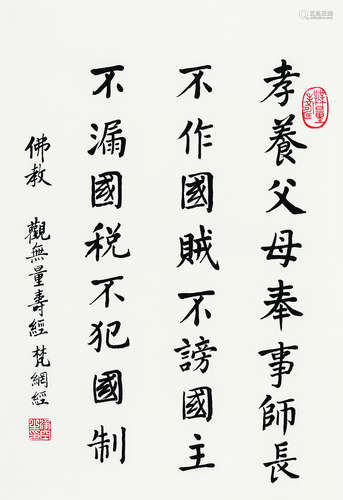 孝養父母奉事師長
不作國賊不謗國主
不漏國税不犯國制
佛教 觀無量壽經 梵網經